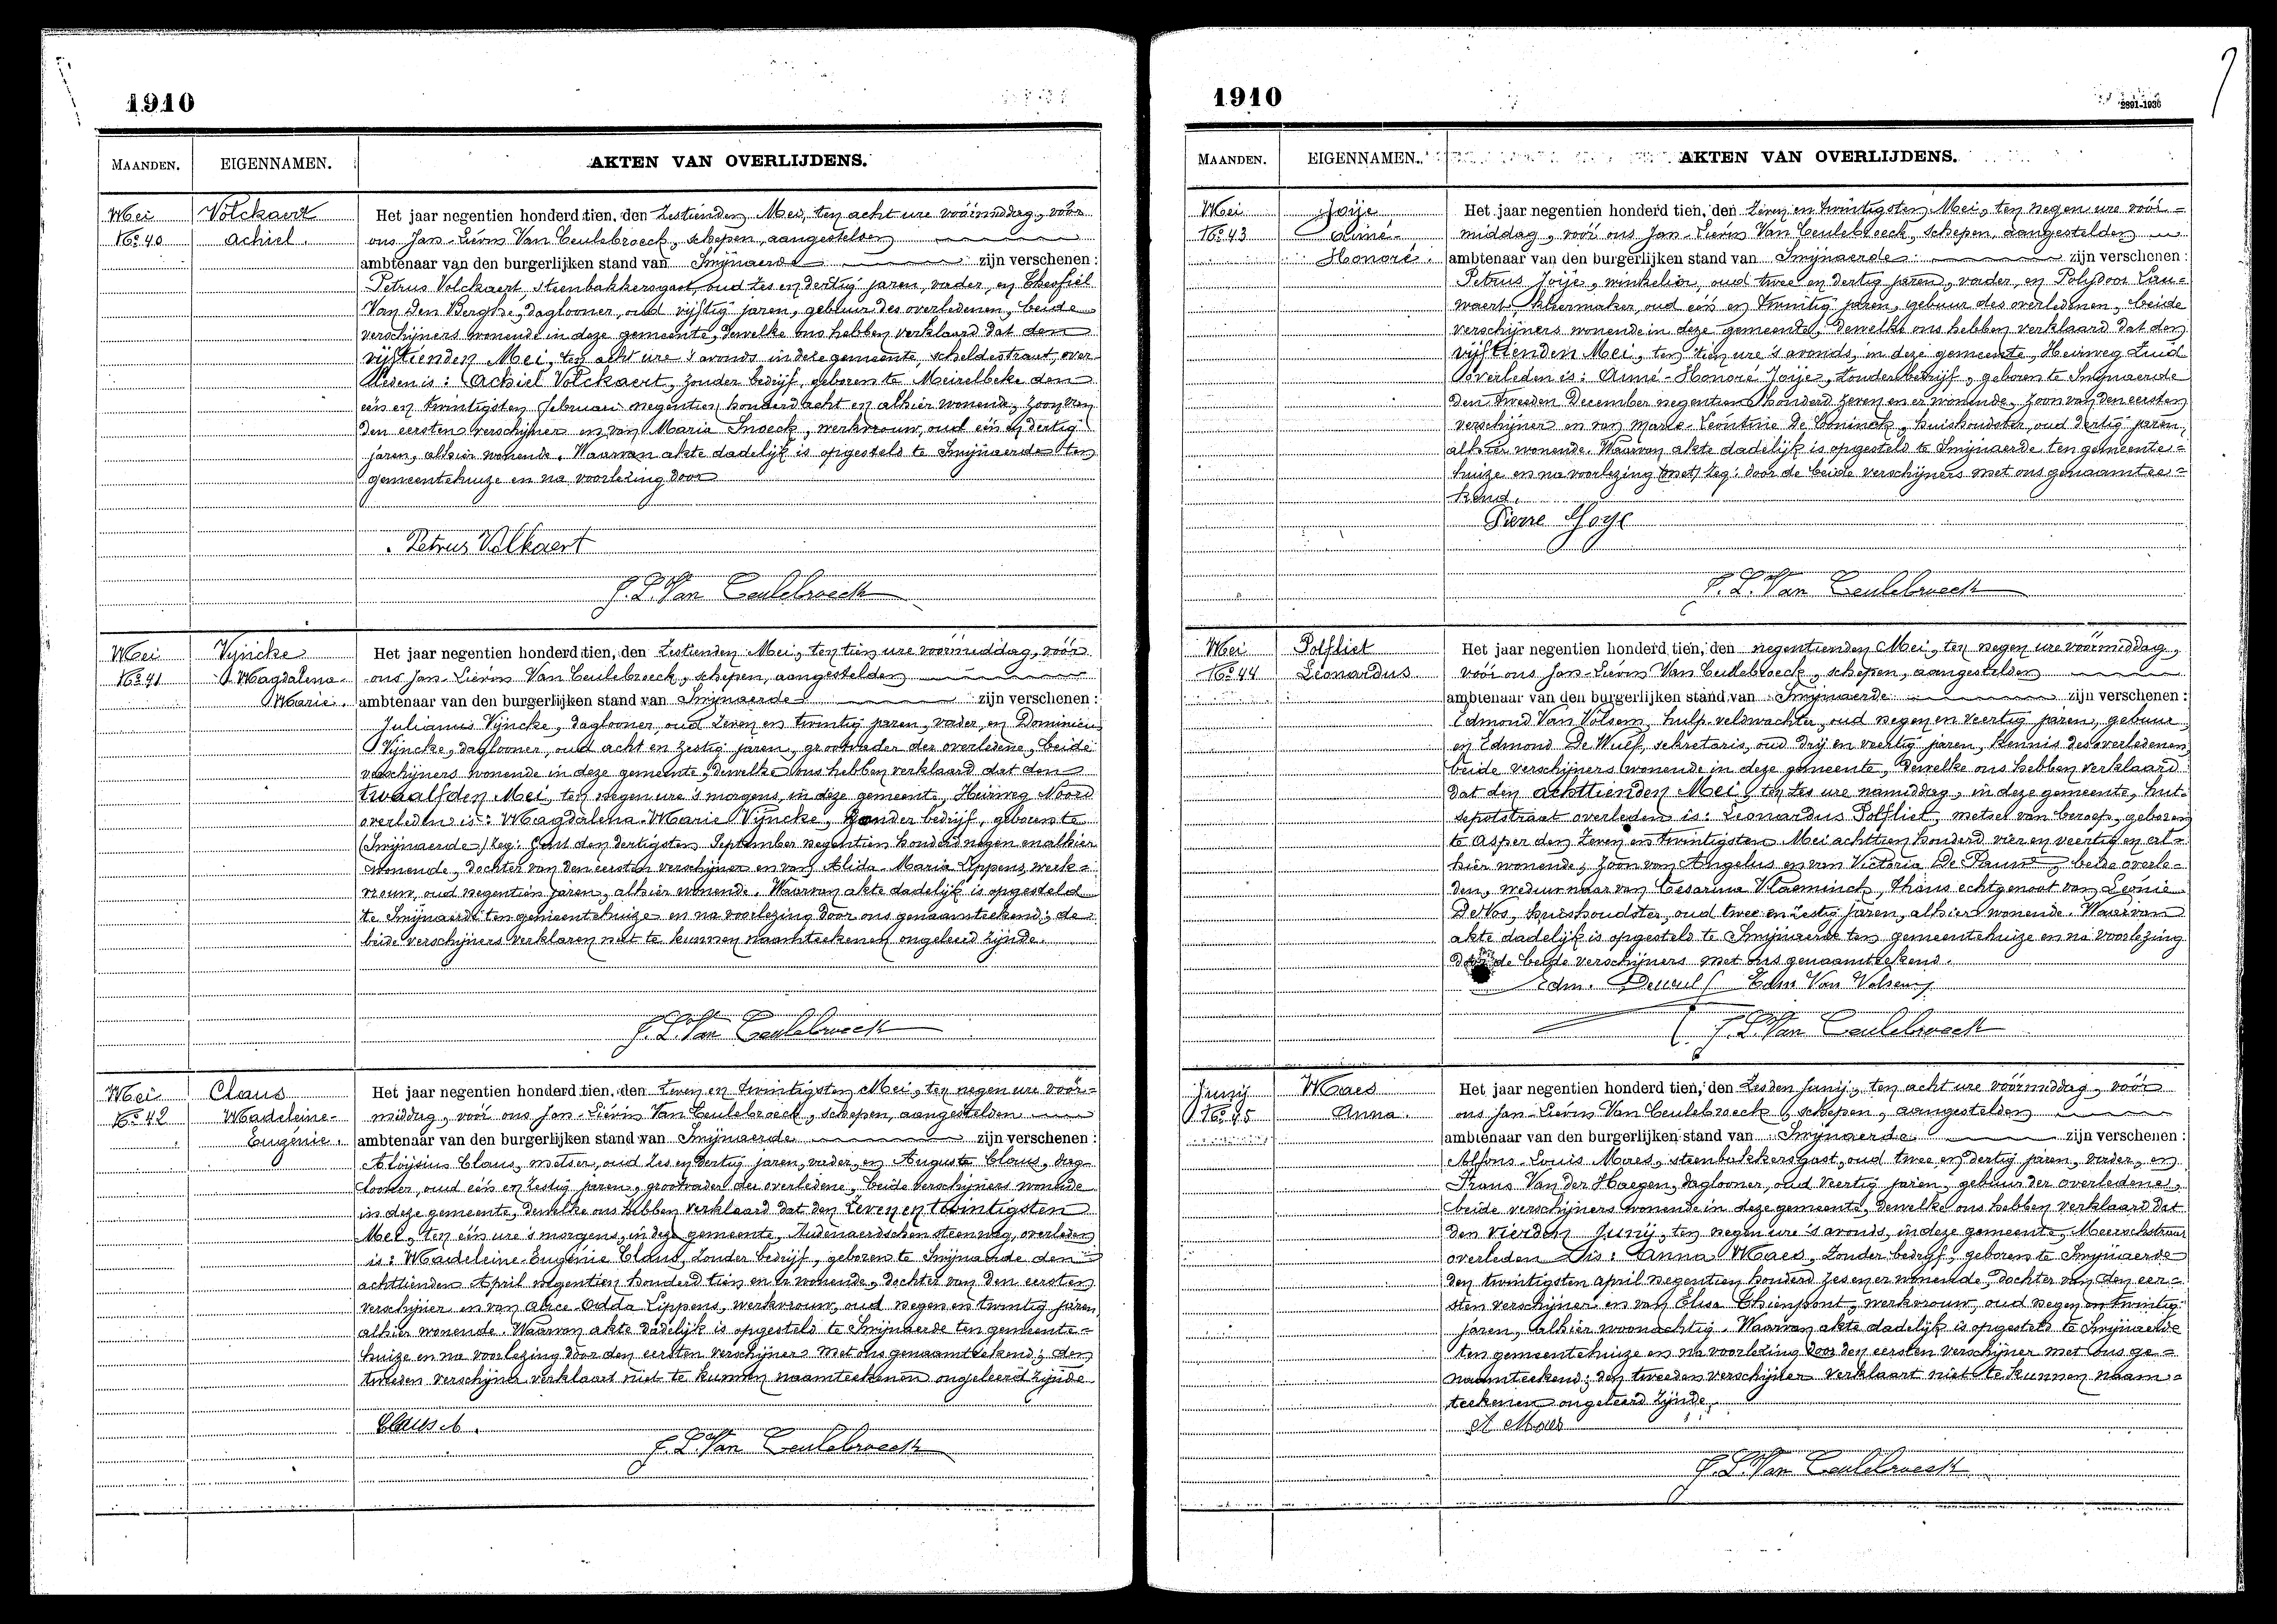 1910
MAANDEN. EIGENNAMEN. AKTEN VAN OVERLIJDENS.
Mei
No 40
Volckaert
Achiel.
Het jaar negentien honderd tien, den zestienden Mei, ten acht ure voórmiddag, vóór
ons Jan-Lievin Van Ceulebroeck, schepen, aangestelden
ambtenaar van den burgerlijken stand van Smijnaerde zijn verschenen:
Petrus Volckaert, steenbakkersgast, oud zes en dertig jaren, vader, en Theofiel
Van Den Berghe, daglooner, oud vijftig jaren, gebuur des overledenen, beide
verschijners wonende in deze gemeente, dewelke ons hebben verklaard dat den
vijftienden Mei, ten acht ure 's avonds in deze gemeente, scheldestraat, over-
leden is: Achiel Volckaert, zonder bedrijf, geboren te Meirelbeke den
één en twintigsten februari negentien honderd acht en alhier wonende, zoon van
den eersten verschijner en van Maria Snoeck, werkvrouw, oud één en dertig
jaren, alhier wonende. Waarvan akte dadelijk is opgesteld te Smijnaerde ten
gemeentehuize en na voorlezing door
Petrus Volkaert
J. L. Van Ceulebroeck
Mei
No 41
Vijncke
Magdalena-
Marie.
Het jaar negentien honderd tien, den zestienden Mei, ten tien ure voormiddag, vóór
ons Jan-Lievin Van Ceulebroeck, schepen, aangestelden
ambtenaar van den burgerlijken stand van Smijnaerde zijn verschenen:
Julianus Vijncke, daglooner, oud zeven en twintig jaren, vader, en Dominicus
Vijncke, daglooner, oud acht en zestig jaren, grootvader der overledene, beide
verschijners wonende in deze gemeente, dewelke ons hebben verklaard dat den
twaalfden Mei, ten negen ure 's morgens, in deze gemeente, Heirweg Noord
overleden is: Magdalena-Marie Vijncke, zonder bedrijf, geboren te
(Smijnaerde) zeg: Gent den dertigsten September negentien honderd negen en alhier
wonende, dochter van den eersten verschijner en van Alida-Maria Lippens, werk-
vrouw, oud negentien jaren, alhier wonende. Waarvan akte dadelijk is opgesteld
te Smijnaerde ten gemeentehuize en na voorlezing door ons genaamteekend; de
beide verschijners verklaren niet te kunnen naamteekenen ongeleerd zijnde.
J. L. Van Ceulebroeck
Mei
No 42
Claus
Madeleine-
Eugénie.
Het jaar negentien honderd tien, den zeven en twintigsten Mei, ten negen ure voór-
middag, voór ons Jan-Lievin Van Ceulebroeck, schepen, aangestelden
ambtenaar van den burgerlijken stand van Smijnaerde zijn verschenen:
Aloijsius Claus, metser, oud zes en dertig jaren, vader, en Auguste Claus, dag-
looner, oud één en zestig jaren, grootvader der overledene, beide verschijners wonende
in deze gemeente, dewelke ons hebben verklaard dat den zeven en twintigsten
Mei, ten één ure 's morgens, in deze gemeente, Audenaerdschen steenweg, overleden
is: Madeleine-Eugénie Claus, zonder bedrijf, geboren te Smijnaerde den
achttienden April negentien honderd tien en er wonende, dochter van den eersten
verschijner en van Alice-Odda Lippens, werkvrouw, oud negen en twintig jaren,
alhier wonende. Waarvan akte dadelijk is opgesteld te Smijnaerde ten gemeente-
huize en na voorlezing door den eersten verschijner met ons genaamteekend; den
tweeden verschijner verklaart niet te kunnen naamteekenen ongeleerd zijnde
Claus A.
J. L. Van Ceulebroeck
1910
2891-1936
MAANDEN. EIGENNAMEN. AKTEN VAN OVERLIJDENS.
Mei
No 43
Joije
Aimé-
Honoré.
Het jaar negentien honderd tien, den zeven en twintigsten Mei, ten negen ure voór-
middag, voór ons Jan-Lievin Van Ceulebroeck, schepen, aangestelden
ambtenaar van den burgerlijken stand van Smijnaerde zijn verschenen:
Petrus Joije, winkelier, oud twee en dertig jaren, vader, en Polydoor Lau-
waert, kleermaker, oud één en twintig jaren, gebuur des overledenen, beide
verschijners wonende in deze gemeente, dewelke ons hebben verklaard dat den
vijftienden Mei, ten tien ure 's avonds, in deze gemeente, Heirweg Zuid
overleden is: Aimé-Honoré Joije, zonder bedrijf, geboren te Smijnaerde
den tweeden December negentien honderd zeven en er wonende, zoon van den eersten
verschijner en van Marie-Léontine De Coninck, huishoudster, oud dertig jaren,
alhier wonende. Waarvan akte dadelijk is opgesteld te Smijnaerde ten gemeente-
huize en na voorlezing (met) zeg: door de beide verschijners met ons genaamtee-
kend.
Pierre Joye
J. L. Van Ceulebroeck
Mei
No 44
Polfliet
Leonardus
Het jaar negentien honderd tien, den negentienden Mei, ten negen ure voórmiddag,
voór ons Jan-Lievin Van Ceulebroeck, schepen, aangestelden
ambtenaar van den burgerlijken stand van Smijnaerde zijn verschenen:
Edmond Van Volsem, hulp-veldwachter, oud negen en veertig jaren, gebuur,
en Edmond De Wulf, sekretaris, oud drij en veertig jaren, kennis des overledenen,
beide verschijners wonende in deze gemeente, dewelke ons hebben verklaard
dat den achttienden Mei, ten zes ure namiddag, in deze gemeente, hut-
sepotstraat overleden is: Leonardus Polfliet, metser van beroep, geboren
te Asper den zeven en twintigsten Mei achttien honderd vier en veertig en al-
hier wonende, zoon van Angelus en van Victoria De Pauw, beide overle-
den, weduwnaar van Cesarina Vlaeminck, thans echtgenoot van Leonie
De Vos, huishoudster, oud twee en zestig jaren, alhier wonende. Waarvan
akte dadelijk is opgesteld te Smijnaerde ten gemeentehuize en na voorlezing
door de beide verschijners met ons genaamteekend.
Edm. Dewulf Edm Van Volsem
J. L. Van Ceulebroeck
Junij
No 45
Maes
Anna.
Het jaar negentien honderd tien, den zesden Junij, ten acht ure voórmiddag, voór
ons Jan-Lievin Van Ceulebroeck, schepen, aangestelden
ambtenaar van den burgerlijken stand van Smijnaerde zijn verschenen:
Alfons-Louis Maes, steenbakkersgast, oud twee en dertig jaren, vader, en
Frans Van der Haegen, daglooner, oud veertig jaren, gebuur der overledene,
beide verschijners wonende in deze gemeente, dewelke ons hebben verklaard dat
den vierden Junij, ten negen ure 's avonds, in deze gemeente, Meerschstraat
overleden is: Anna Maes, zonder bedrijf, geboren te Smijnaerde
den twintigsten april negentien honderd zes en er wonende, dochter van den eer-
sten verschijner en van Elisa Thienpont, werkvrouw, oud negen en twintig
jaren, alhier woonachtig. Waarvan akte dadelijk is opgesteld te Smijnaerde
ten gemeentehuize en na voorlezing door den eersten verschijner met ons ge-
naamteekend; den tweeden verschijner verklaart niet te kunnen naam-
teekenen ongeleerd zijnde.
A Maes
J. L. Van Ceulebroeck